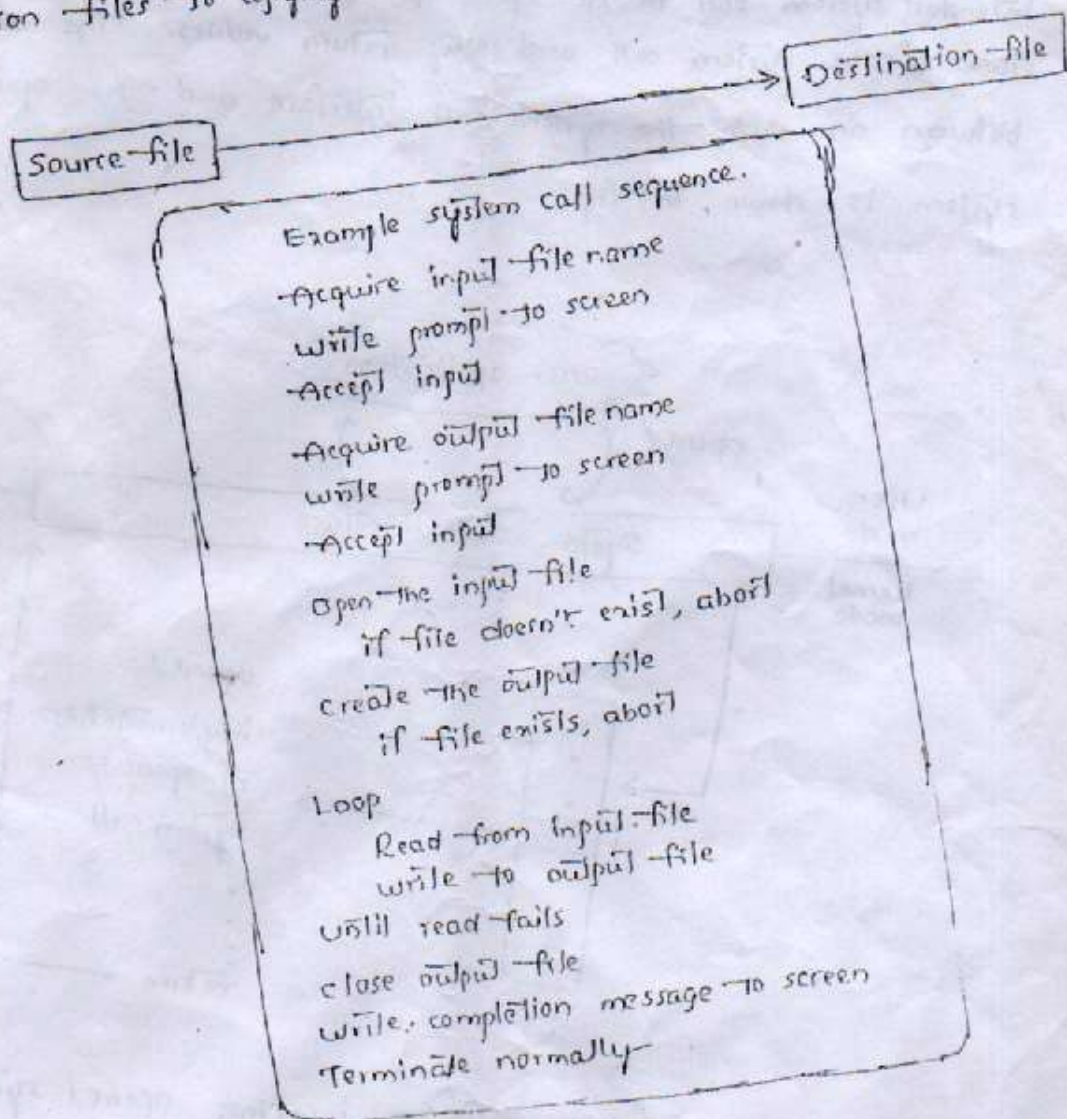 files to
Destination file
Source file
Example system call sequence.
Acquire input file name
write prompt to screen
Accept input
Acquire output file name
write prompt to screen
Accept input
Open the input file
if file doesn't exist, abort
create the output file
if file exists, abort
Loop
Read from input file
write to output file
until read fails
close output file
write completion message to screen
Terminate normally